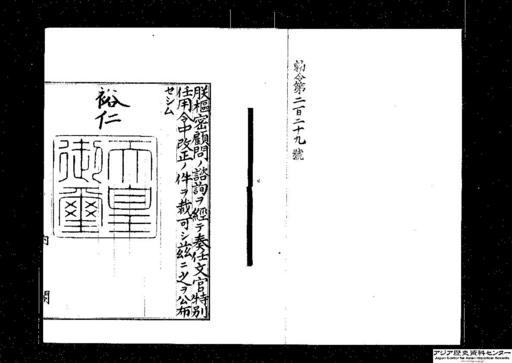 勅令第二百二十九號
朕樞密顧問ノ諮詢ヲ經テ奏任文官特別
任用令中改正ノ件ヲ裁可シ茲ニ之ヲ公布
セシム
裕仁
天皇
御璽
内閣
アジア歴史資料センター
Japan Center for Asian Historical Records